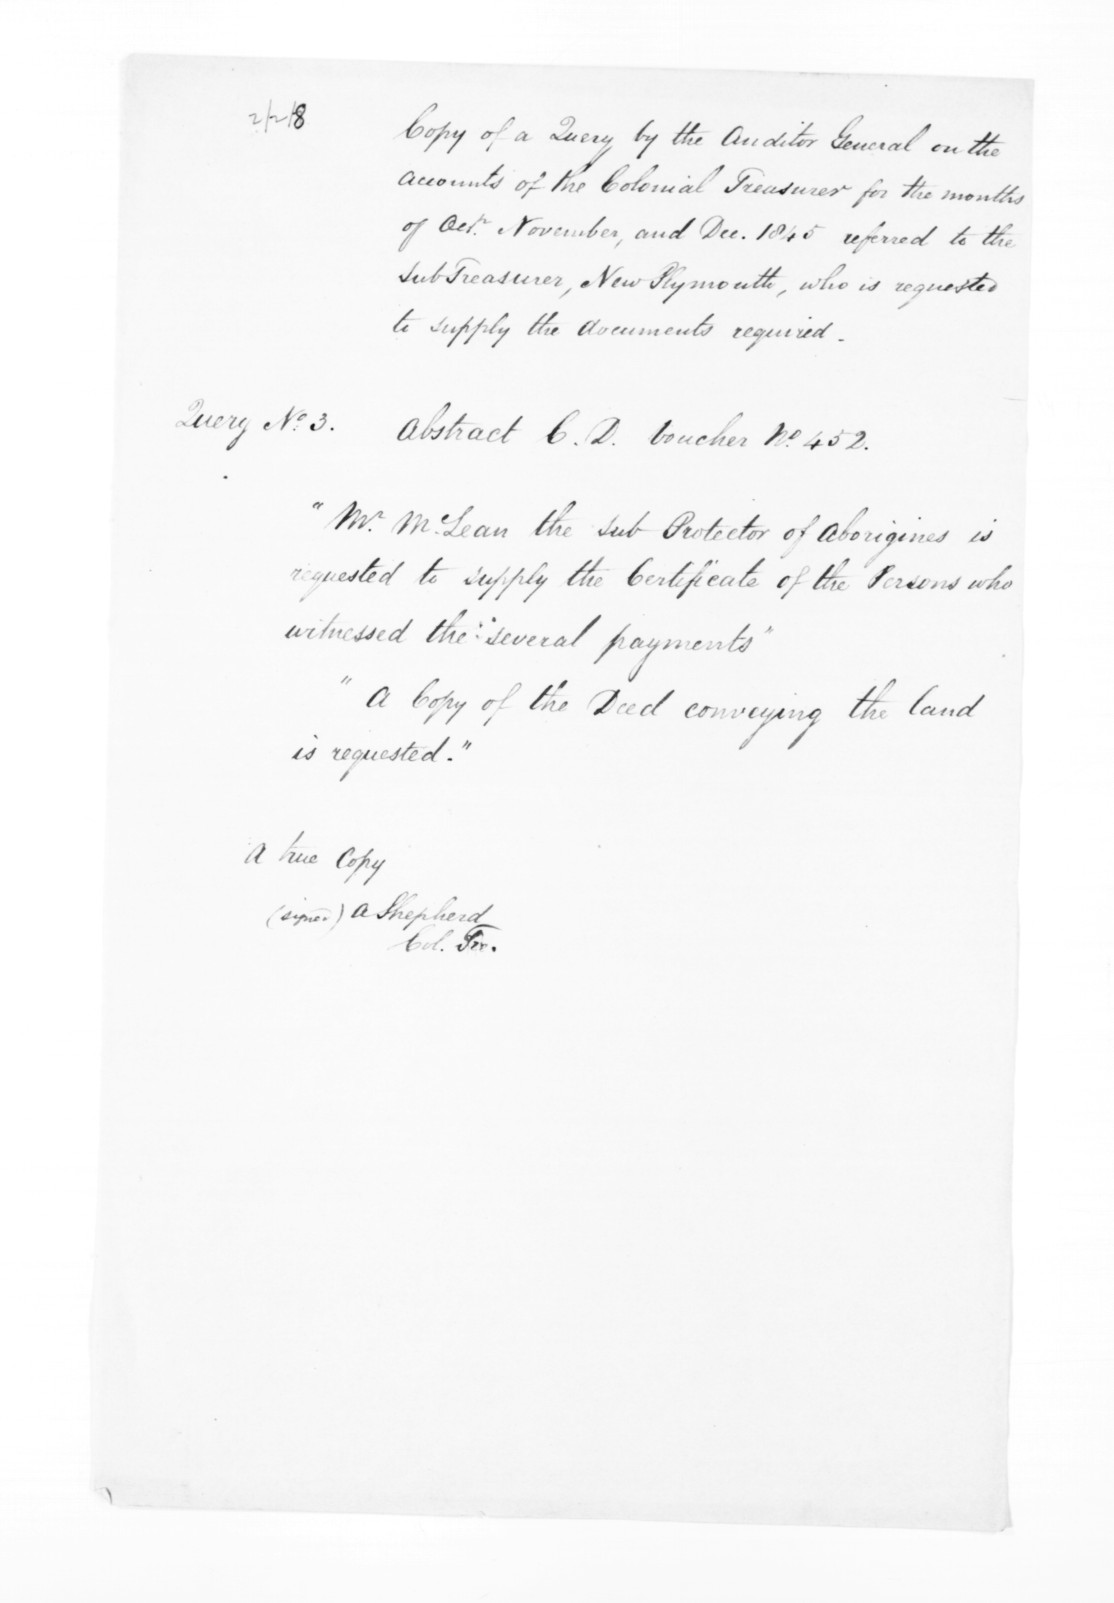 2/2/8
Copy of a Query by the Auditor General on the
accounts of the Colonial Treasurer for the months
of Octr. November, and Dec. 1845 referred to the
Sub Treasurer, New Plymouth, who is requested
to supply the documents required.
Query No. 3. Abstract C. D. Voucher No. 452.
"Mr. McLean the Sub Protector of Aborigines is
requested to supply the Certificate of the Persons who
witnessed the "several payments"
"A Copy of the Deed conveying the land
is requested."
A true Copy
(signed) A Shepherd
Col. Tre.